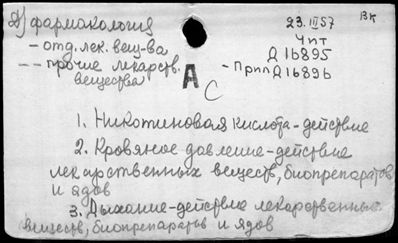 Д) фармакология
- отд. лек. вещ-ва
-- прочие лекарств.
вещества
23.III57
Вк
Чпт
Д16895
- ПрилД16896
А
С
1. Никотиновая кислота-действие
2. Кровяное давление-действие
лекарственных веществ, биопрепаратов
и ядов
3. Дыхание-действие лекарственных
веществ, биопрепаратов и ядов